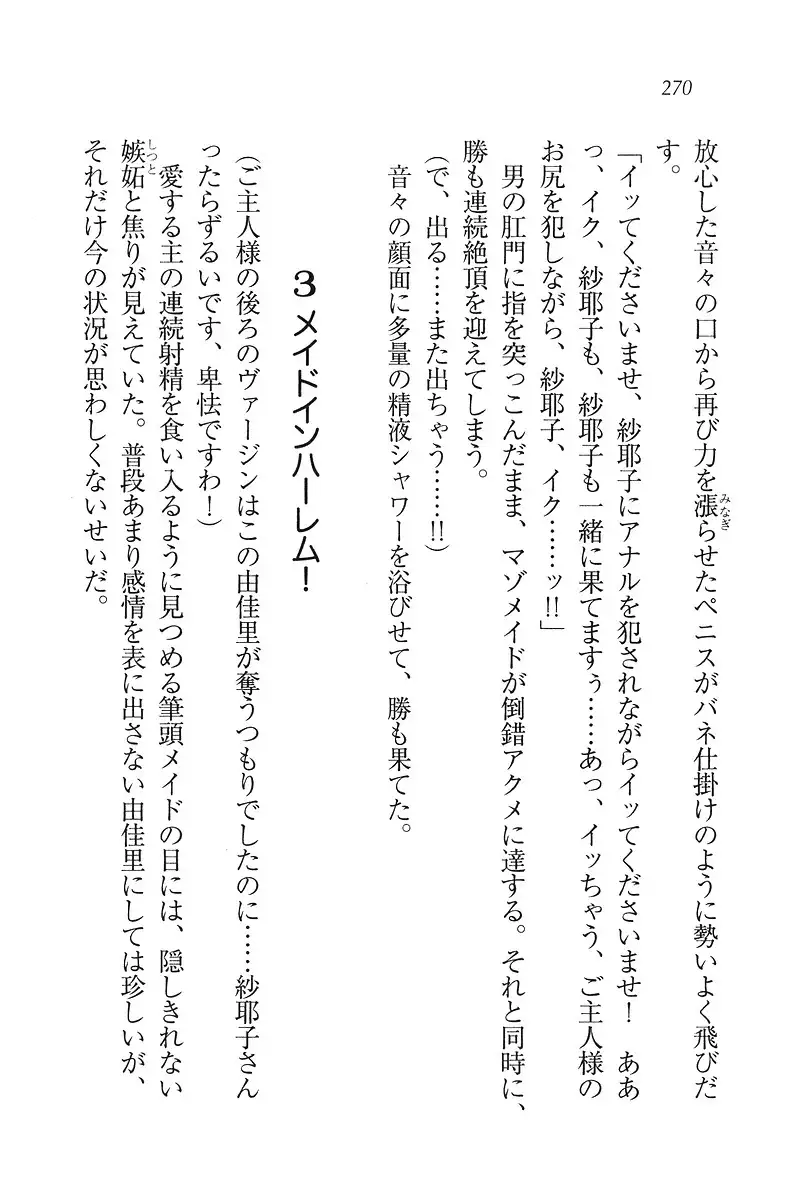 270
放心した音々の口から再び力を漲らせたペニスがバネ仕掛けのように勢いよく飛びだ
みなぎ
す。
「イッてくださいませ、紗耶子にアナルを犯されながらイッてくださいませ！　ああ
っ、イク、紗耶子も、紗耶子も一緒に果てますぅ……あっ、イッちゃう、ご主人様の
お尻を犯しながら、紗耶子、イク……ッ!!」
男の肛門に指を突っこんだまま、マゾメイドが倒錯アクメに達する。それと同時に、
勝も連続絶頂を迎えてしまう。
（で、出る……また出ちゃう……!!）
音々の顔面に多量の精液シャワーを浴びせて、勝も果てた。
3 メイドインハーレム！
（ご主人様の後ろのヴァージンはこの由佳里が奪うつもりでしたのに……紗耶子さん
ったらずるいです、卑怯ですわ！）
愛する主の連続射精を食い入るように見つめる筆頭メイドの目には、隠しきれない
嫉妬と焦りが見えていた。普段あまり感情を表に出さない由佳里にしては珍しいが、
しっと
それだけ今の状況が思わしくないせいだ。